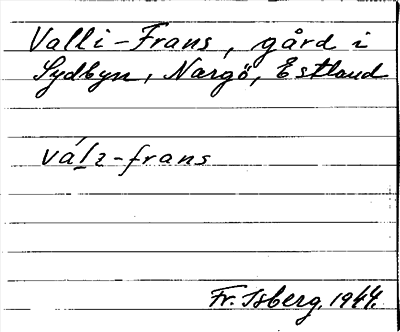 Valli-Frans, gård i
Sydbyn, Nargö, Estland
vá̱lı-frans
Fr. Isberg, 1944.